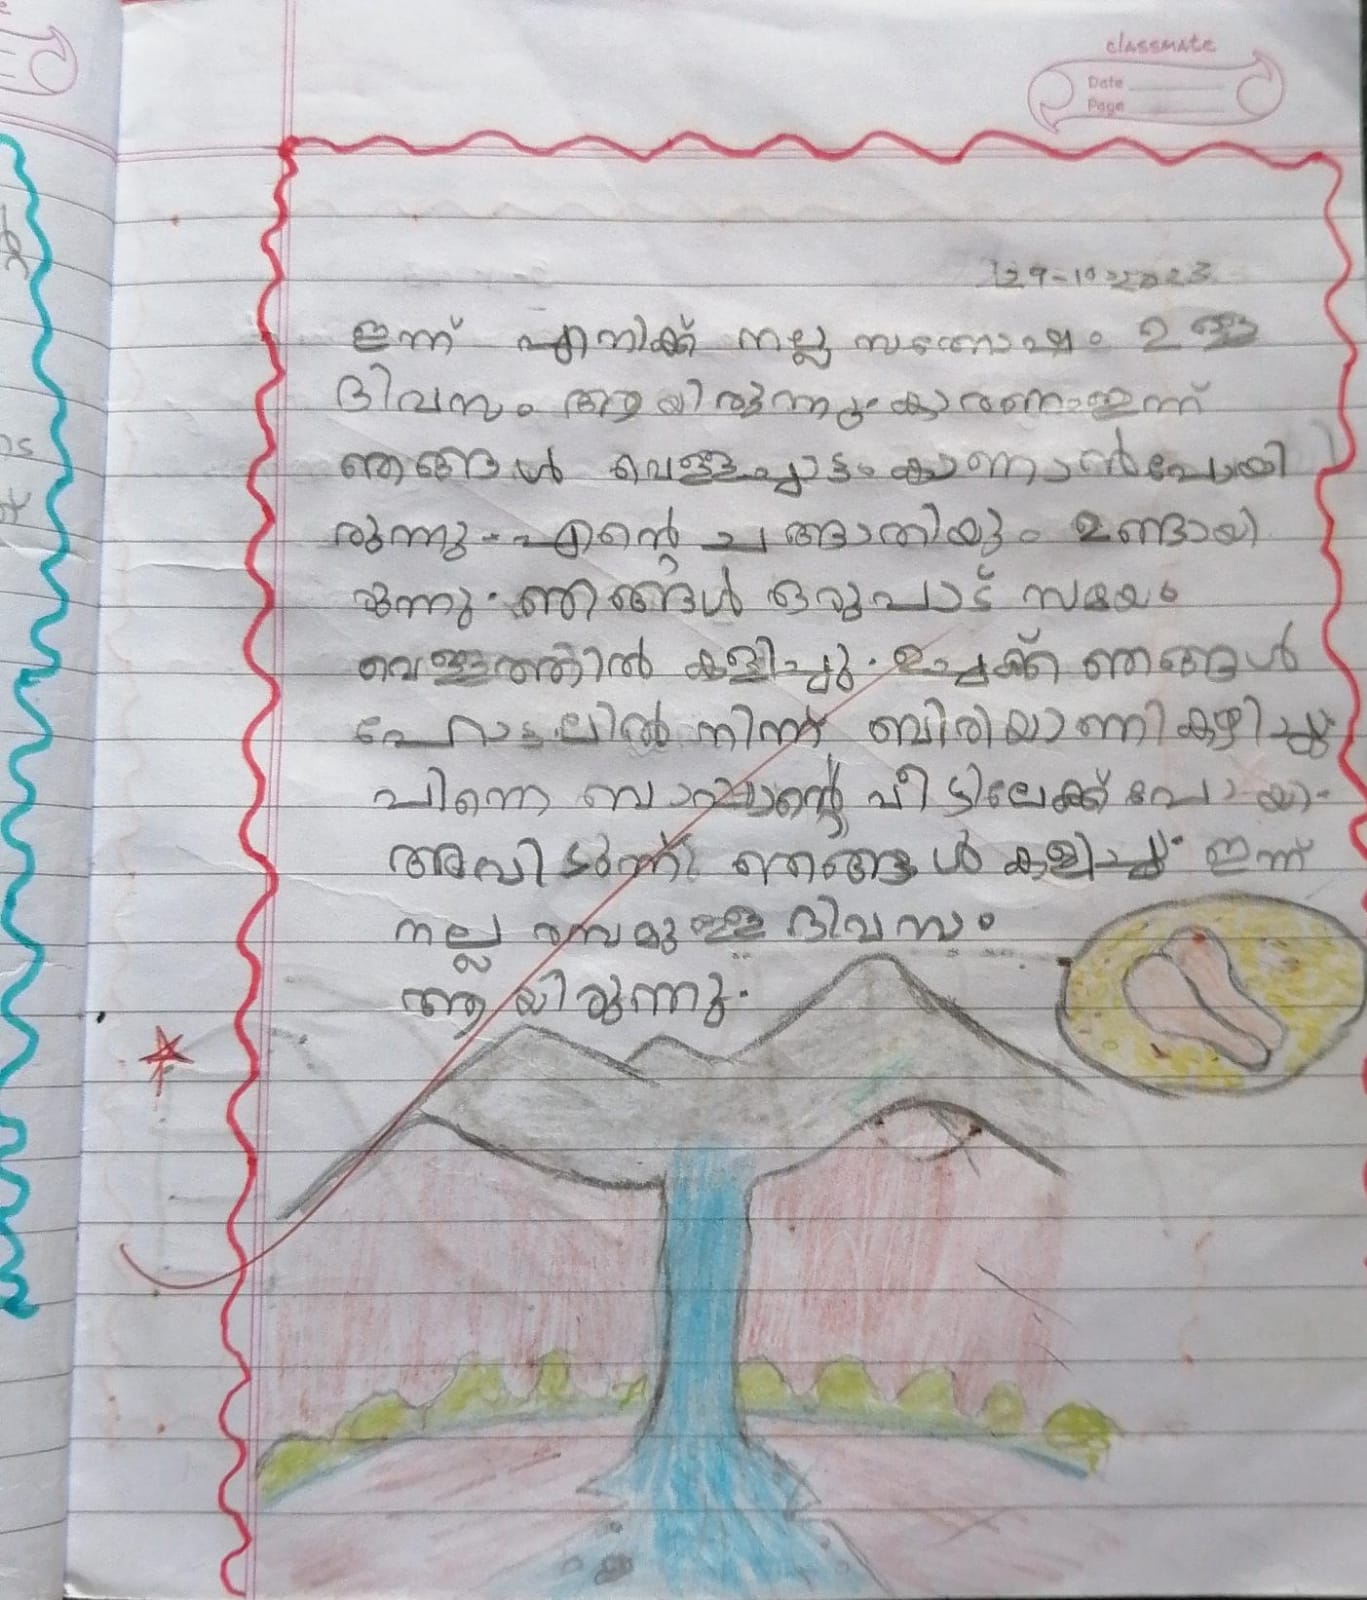 classmate
Date
Page
29-10-2023
ഇന്ന് എനിക്ക് നല്ല സന്തോഷം ഉള്ള
ദിവസം ആയിരുന്നു. കാരണം ഇന്ന്
ഞങ്ങൾ വെള്ളച്ചാട്ടം കാണാൻ പോയി
രുന്നു. എന്റെ ചങ്ങാതിയും ഉണ്ടായി
രുന്നു. ഞങ്ങൾ ഒരുപാട് സമയം
വെള്ളത്തിൽ കളിച്ചു. ഉച്ചക്ക് ഞങ്ങൾ
ഹോട്ടലിൽ നിന്ന് ബിരിയാണി കഴിച്ചു
പിന്നെ വീട്ടിലേക്ക് പോയി.
അവിടുന്ന് ഞങ്ങൾ കളിച്ചു. ഇന്ന്
നല്ല രസമുള്ള ദിവസം
ആയിരുന്നു.